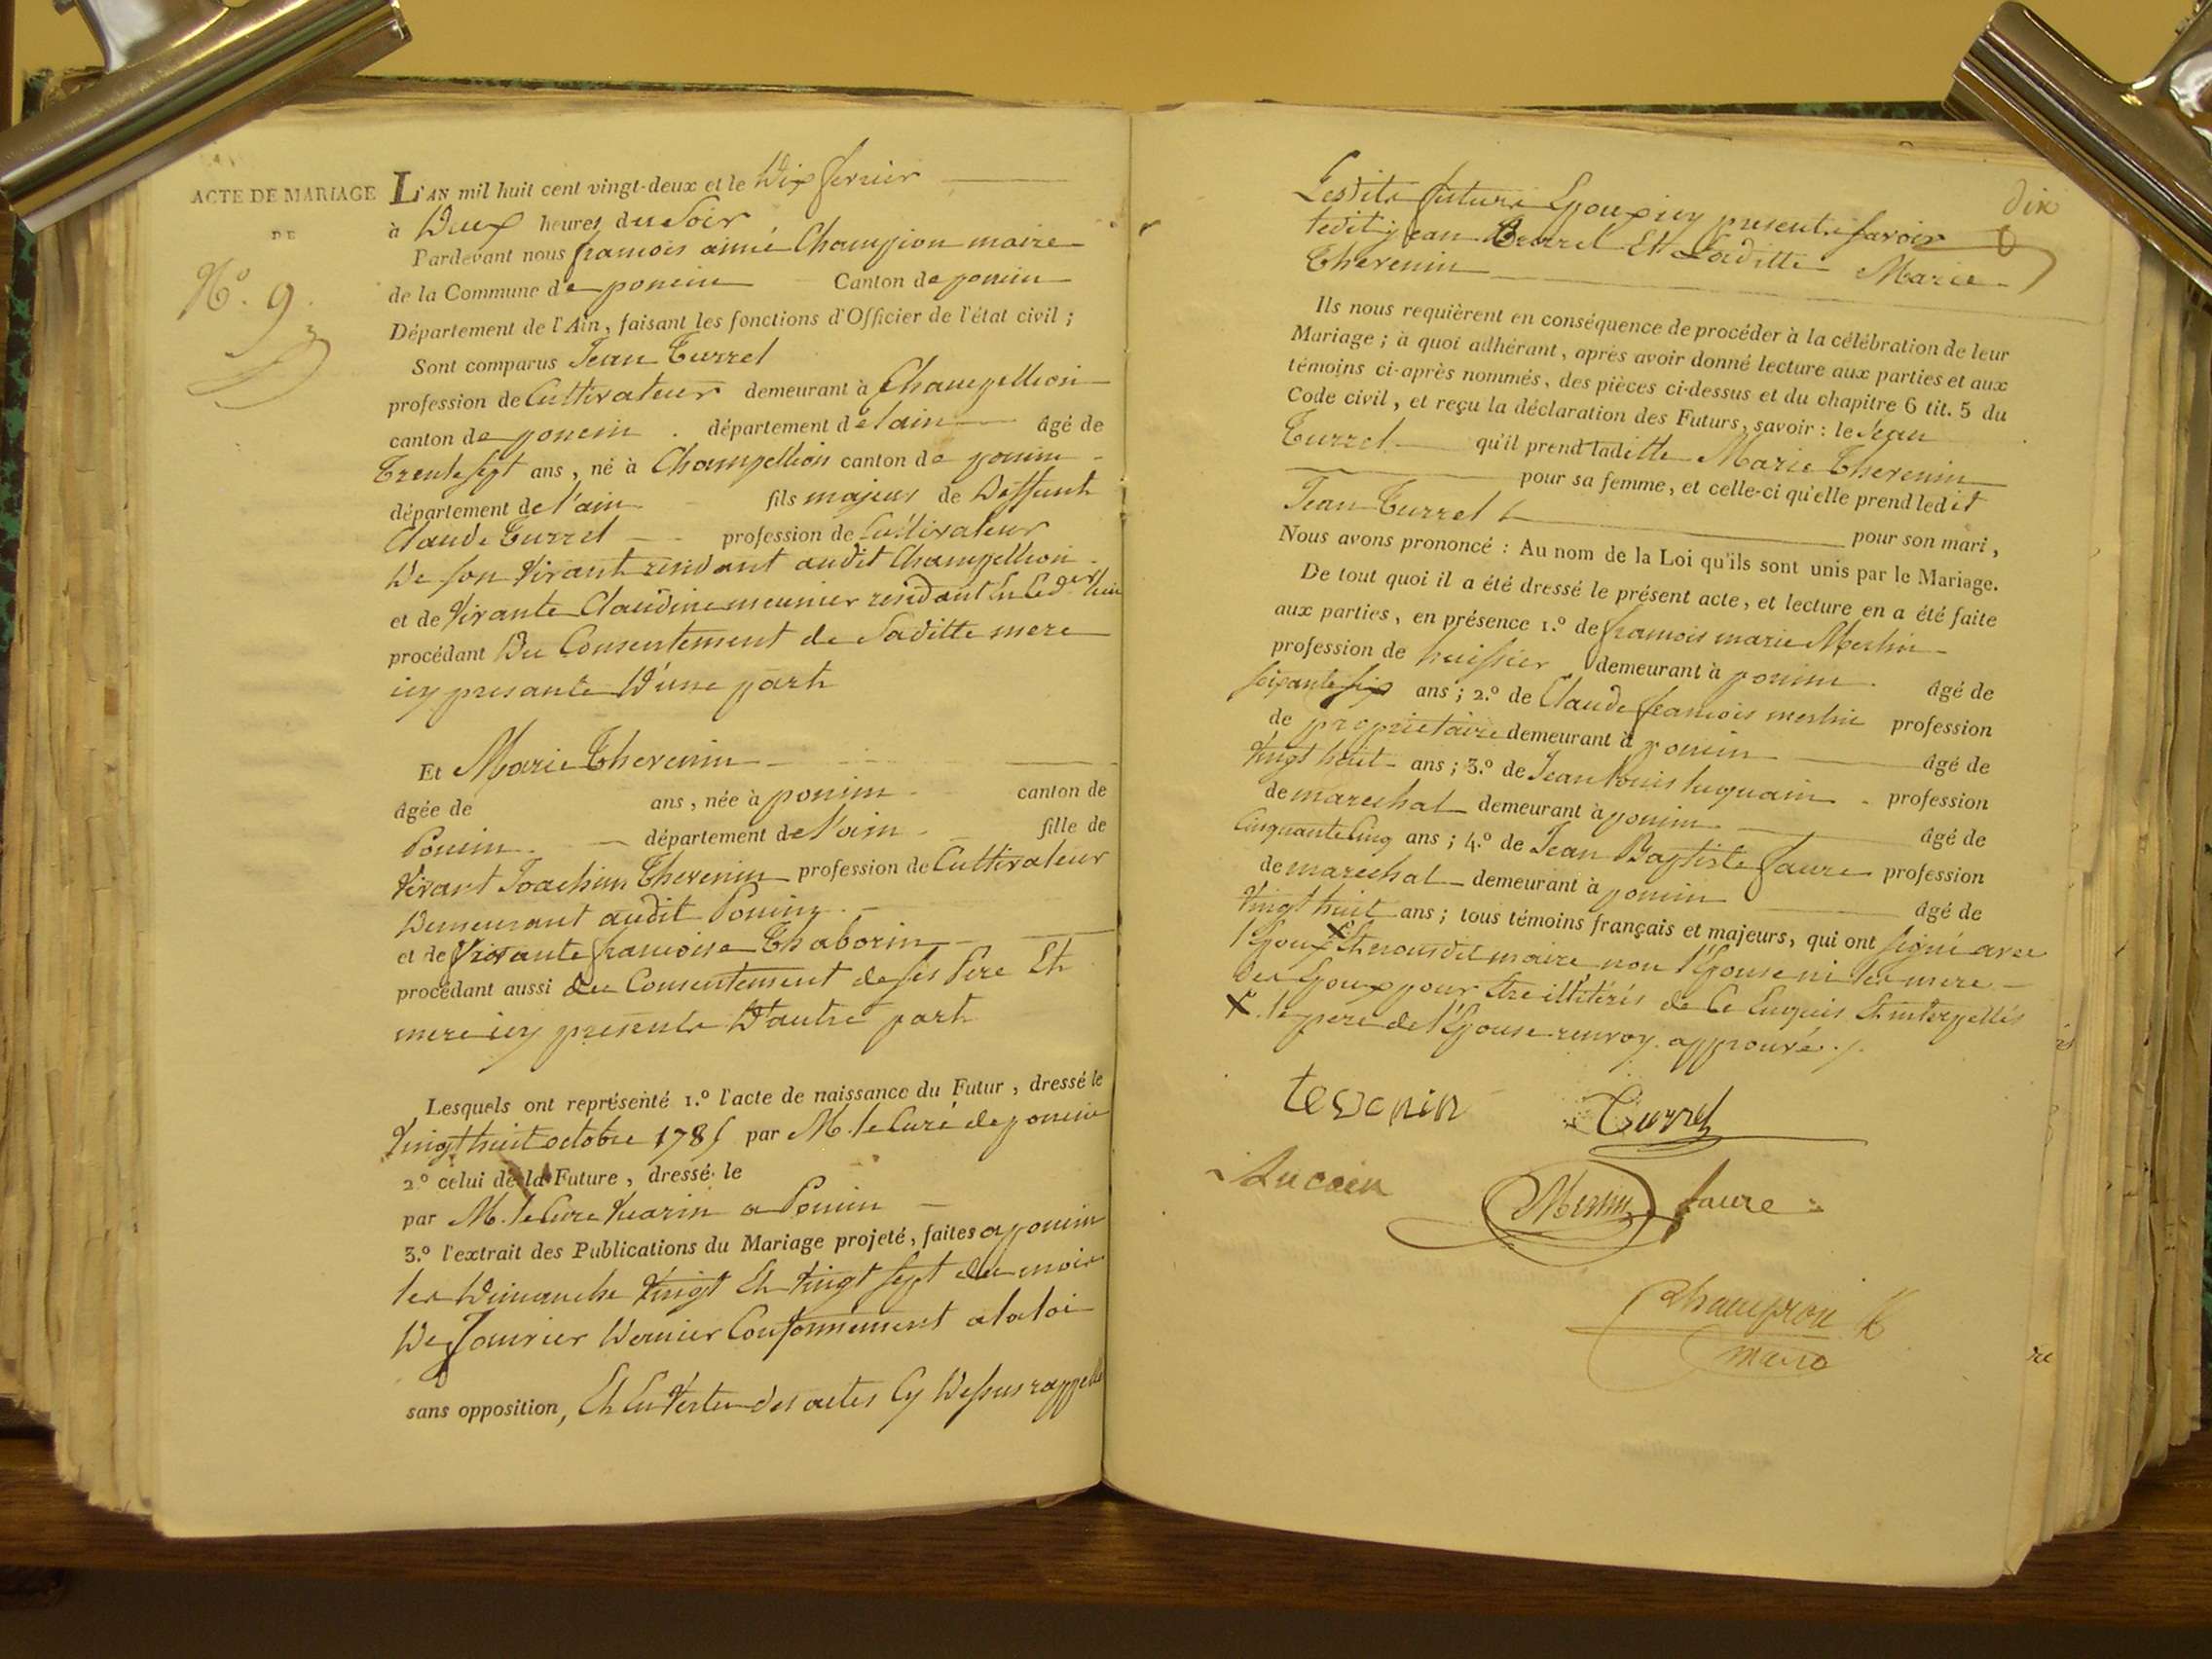 ACTE DE MARIAGE
DE
N.º 9.
L'AN mil huit cent vingt-deux et le Dix fevrier
à Deux heures du Soir
Pardevant nous francois aimé Champion maire
de la Commune de poncin Canton de poncin
Département de l'Ain, faisant les fonctions d'Officier de l'état civil ;
Sont comparus Jean Turrel
profession de Cultivateur demeurant à Champellion
canton de poncin . département de lain âgé de
Trente sept ans, né à Champellion canton de poncin
département de l'ain fils majeur de Deffunt
Claude Turrel profession de Cultivateur
De son Vivant residant audit Champellion
et de Vivante Claudine meunier residant en ce dernier
procédant Du Consentement de Saditte mere
icy presante D'une part
Et Marie Thevenin
âgée de ans, née à poncin canton de
Poncin département de l'ain fille de
Vivant Joachim Thevenin profession de Cultivateur
Demeurant audit Poncin
et de Vivante francoise Thaborin
procédant aussi du Consentement de ses Pere Et
mere icy presents D'autre part
Lesquels ont représenté 1.º l'acte de naissance du Futur, dressé le
Vingt huit octobre 1785 par M. le Curé de poncin
2.º celui de la Future, dressé le
par M. le Cure Varin a Poncin
3.º l'extrait des Publications du Mariage projeté, faites a poncin
les Dimanche Vingt Et Vingt sept du mois
De Janvier Dernier Conformement a la loi
sans opposition, Et En Vertu des actes Cy Dessus rappellé
dix
Lesdits futurs Epoux icy presents savoir
ledit jean Turrel Et Laditte Marie
Thevenin
Ils nous requièrent en conséquence de procéder à la célébration de leur
Mariage ; à quoi adhérant, après avoir donné lecture aux parties et aux
témoins ci-après nommés, des pièces ci-dessus et du chapitre 6 tit. 5 du
Code civil, et reçu la déclaration des Futurs, savoir : le Jean
Turrel qu'il prend laditte Marie Thevenin
pour sa femme, et celle-ci qu'elle prend ledit
Jean Turrel pour son mari,
Nous avons prononcé : Au nom de la Loi qu'ils sont unis par le Mariage.
De tout quoi il a été dressé le présent acte, et lecture en a été faite
aux parties, en présence 1.º de francois marie Merlin
profession de huissier demeurant à poncin âgé de
soixante six ans ; 2.º de Claude francois merlin profession
de proprietaire demeurant à poncin âgé de
Vingt huit ans ; 3.º de Jean Louis luquain profession
de marechal demeurant à poncin âgé de
Cinquante Cinq ans ; 4.º de Jean Baptiste faure profession
de marechal demeurant à poncin âgé de
Vingt huit ans ; tous témoins français et majeurs, qui ont signé avec
l'Epoux X Et nousdit maire non l'Epouse ni les mere
des Epoux pour Etre illitérés de Ce Enquis Et interpellés
X le pere de l'Epouse renvoy approuvé ./.
tevenin Turrel
Lucain Merlin faure
Champion
maire